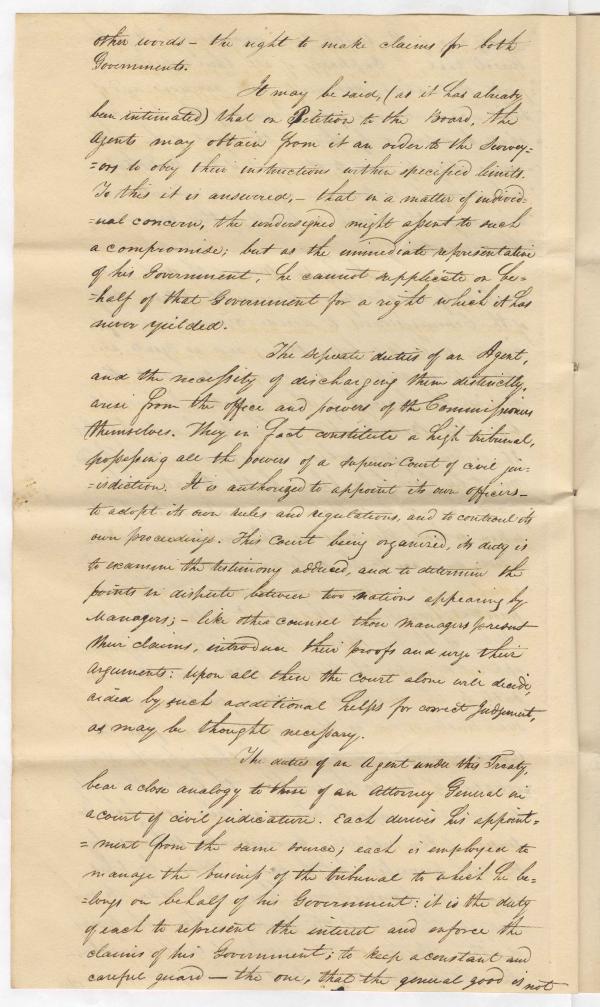 other words – the right to make claims for both
Governments.
It may be said, (as it has already
been intimated) that on Petition to the Board, the
Agents may obtain from it an order to the Survey-
-ors to obey their instructions within specified limits.
To this it is answered, – that in a matter of individ-
-ual concern, the undersigned might assent to such
a compromise; but as the immediate representative
of his Government, he cannot supplicate on be-
-half of that Government for a right which it has
never yielded.
The seperate duties of an Agent,
and the necessity of discharging them distinctly,
arise from the office and powers of the Commissioners
themselves. They in fact constitute a high tribunal,
possessing all the powers of a superior Court of civil jur-
-isdiction. It is authorized to appoint its own officers –
to adopt its own rules and regulations, and to controul its
own proceedings. This Court being organized, its duty is
to examine the testimony adduced, and to determine the
points in dispute between two nations appearing by
Managers; – like other counsel those managers present
their claims, introduce their proofs and urge their
arguments: Upon all these the Court alone will decide,
aided by such additional helps for correct Judgment,
as may be thought necessary.
The duties of an Agent under this Treaty,
bear a close analogy to those of an Attorney General in
a court of civil judicature. Each derives his appoint=
=ment from the same source; each is employed to
manage the business of the tribunal to which he be=
=longs on behalf of his Government: it is the duty
of each to represent the interest and enforce the
claims of his Government; to keep a constant and
careful guard – the one, that the general good is not